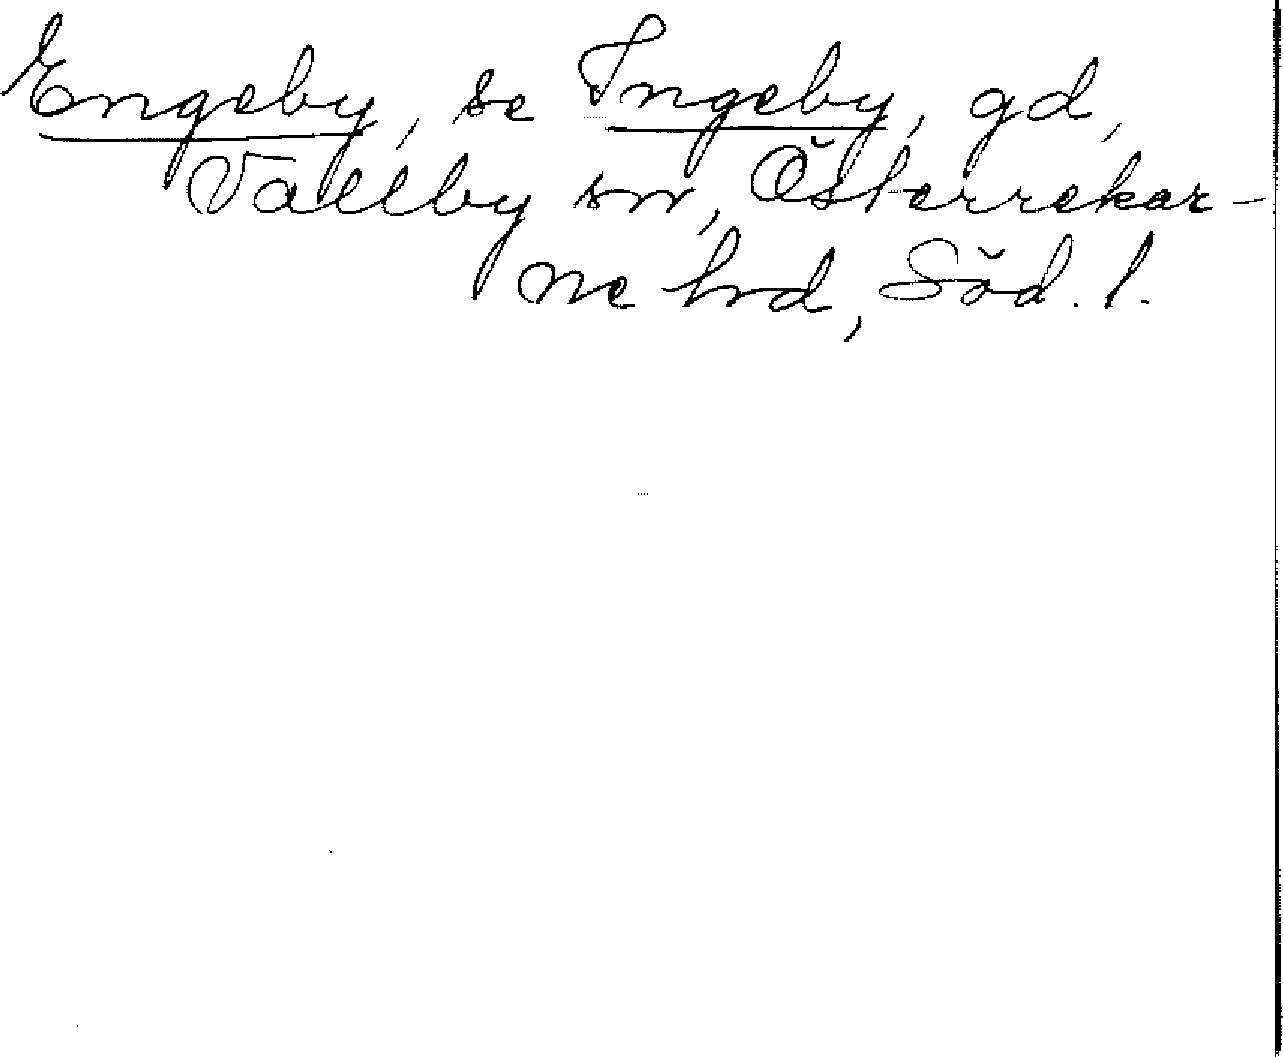 Engeby, se Ingeby, gd,
Vallby sn, Österrekar-
ne hrd, Söd. l.